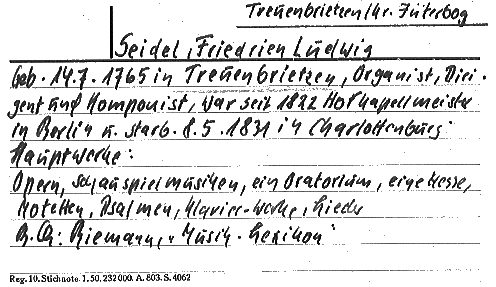 Treuenbrietzen/Kr. Jüterbog
Seidel, Friedrich Ludwig
Geb. 14.7.1765 in Treuenbrietzen, Organist, Diri-
gent und Komponist, war seit 1822 Hofkapellmeister
in Berlin u. starb. 8.5.1831 in Charlottenburg.
Hauptwerke:
Opern, Schauspielmusiken, ein Oratorium, eine Messe,
Motetten, Psalmen, Klavier-Werke, Lieder
Riemann, "Musik-Lexikon"
Reg. 10. Stichnote. 1. 50. 232000. A. 803. S. 4062